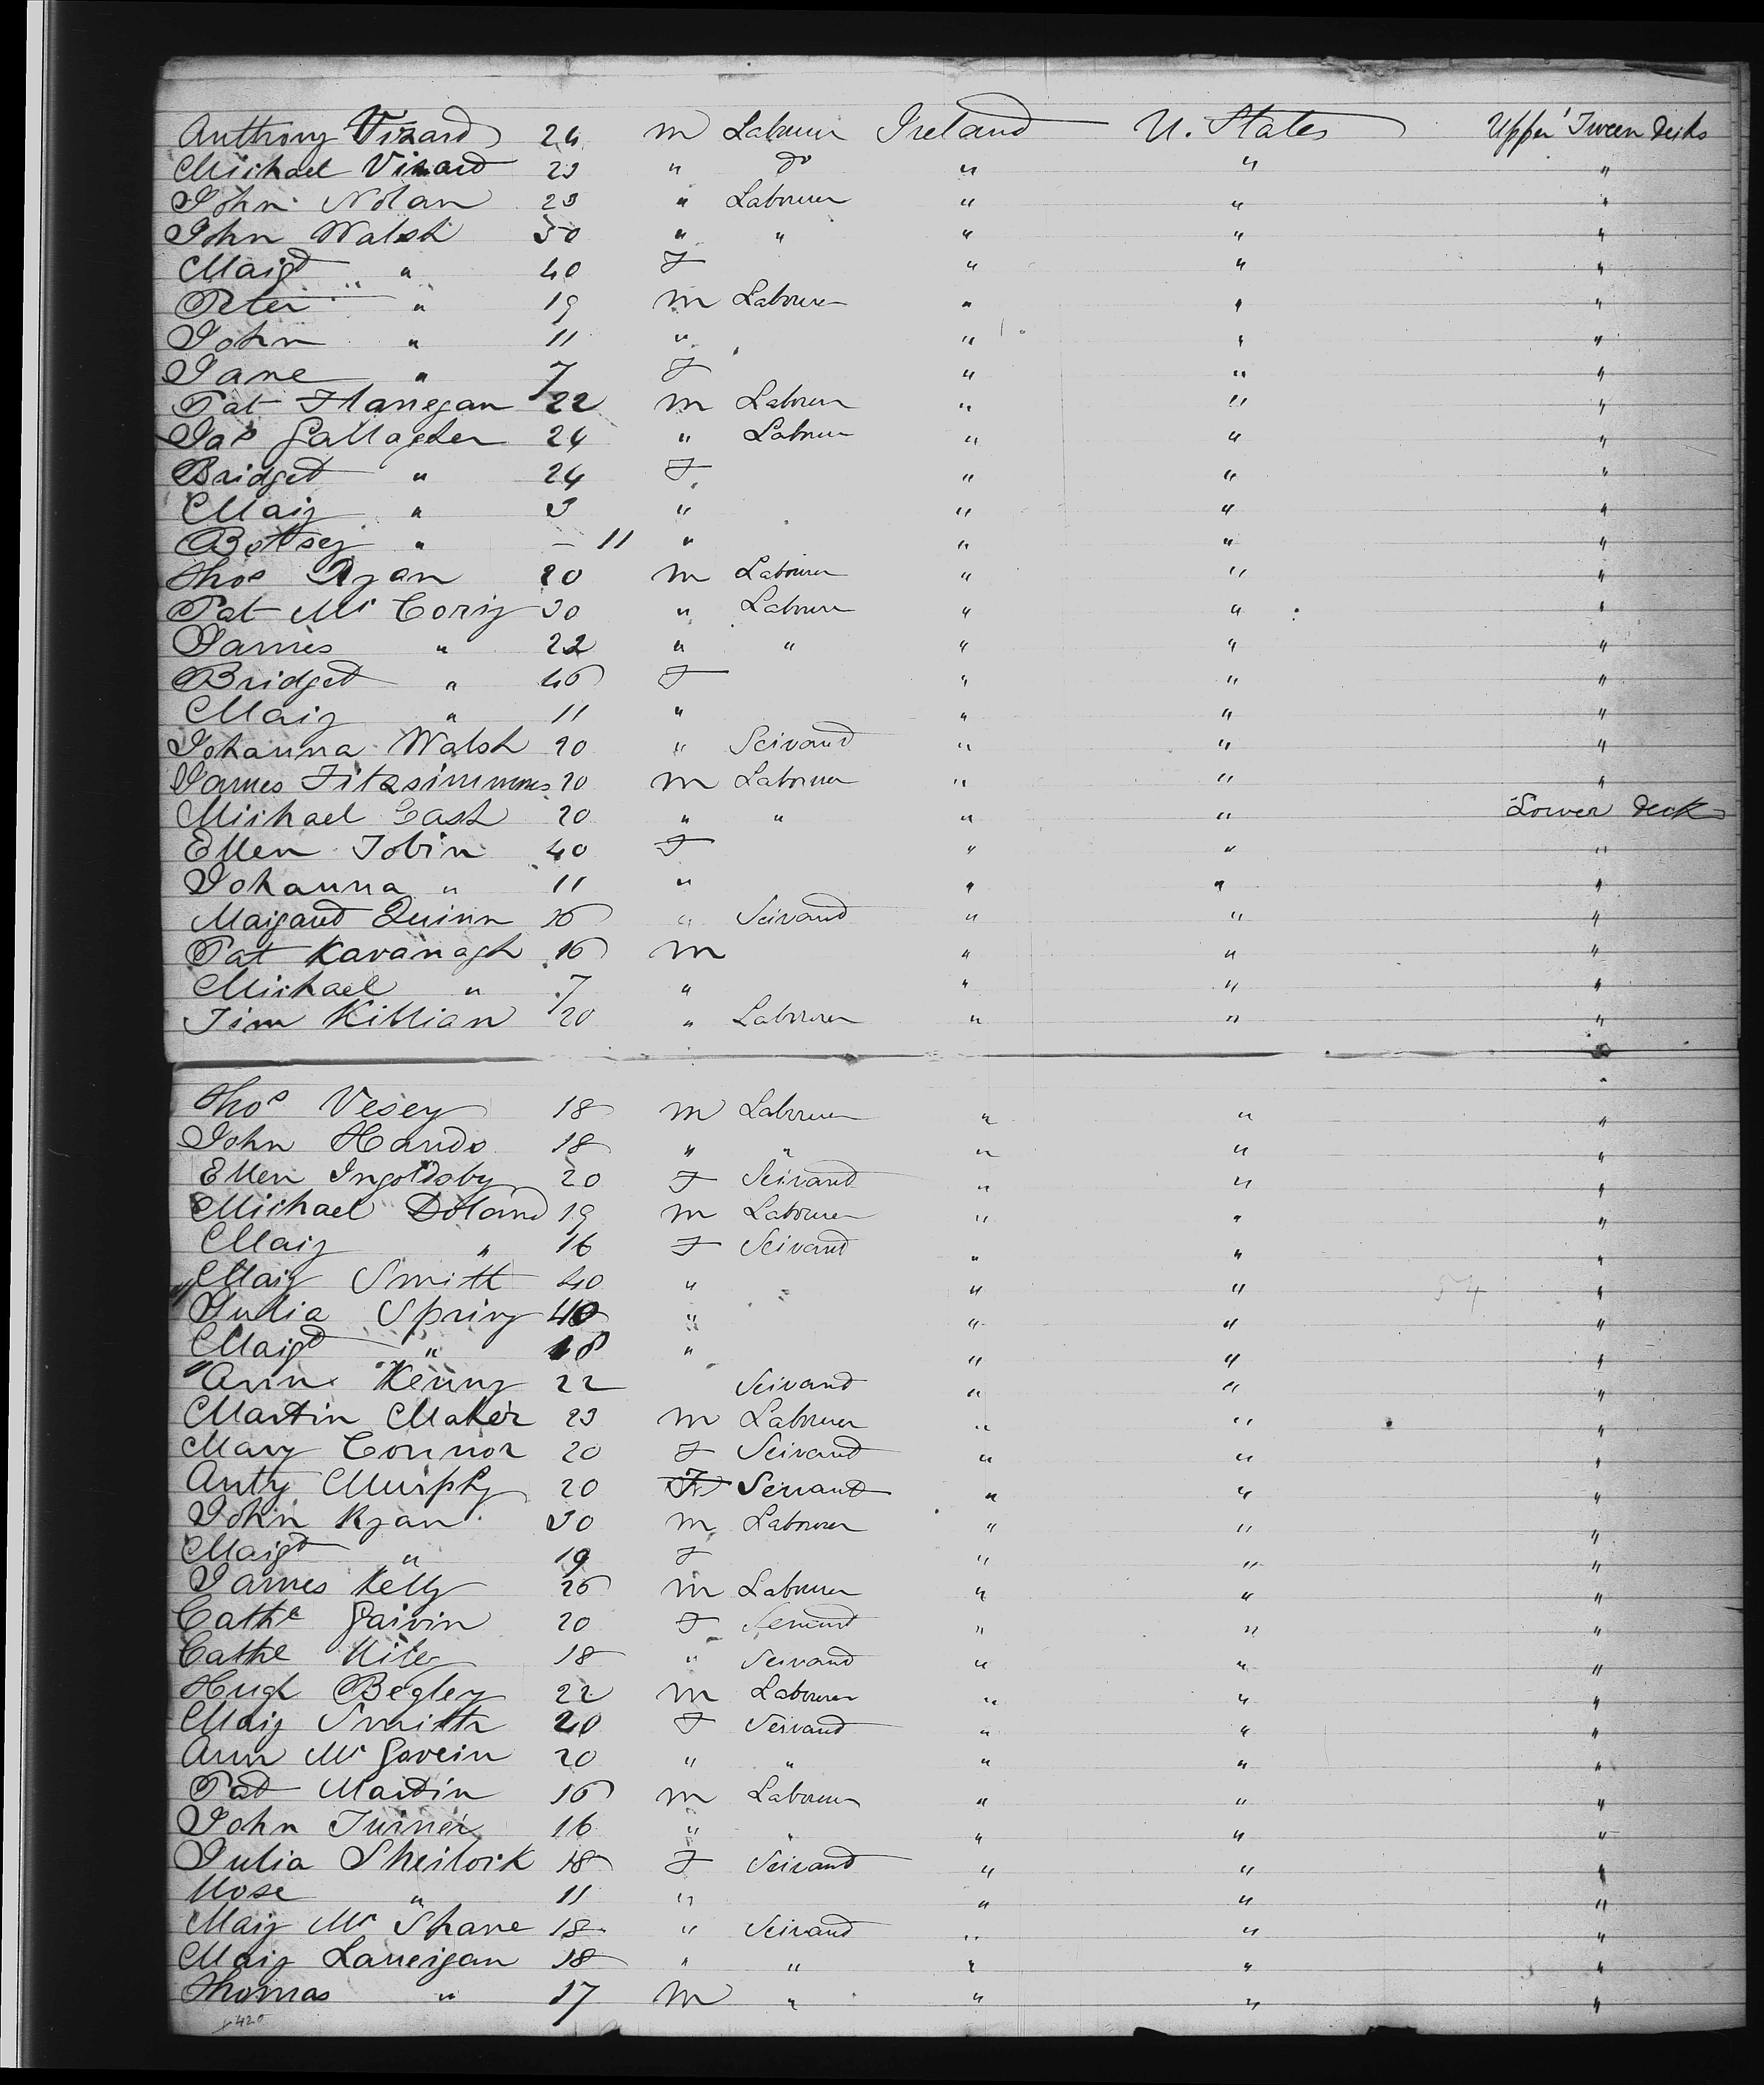 Anthony Vizard 24 m Labourer Ireland U. States Upper 'Tween Decks
Michael Vizard 23 " do " " "
John Nolan 23 " Labourer " " "
John Walsh 50 " " " " "
Margt " 40 F " " "
Peter " 19 m Labourer " " "
John " 11 " " " "
Jane " 7 F " " "
Pat Flanegan 22 m Labourer " " "
Jas Gallagher 24 " Labourer " " "
Bridget " 24 F " " "
Mary " 3 " " " "
Betsey " - 11 " " " "
Thos Ryan 20 m Labourer " " "
Pat Mc 30 " Labourer " " "
James " 22 " " " " "
Bridget " 46 F " " "
Mary " 11 " " " "
Johanna Walsh 20 " Servant " " "
James Fitzsimmons 20 m Labourer " " "
Michael Cash 20 " " " " Lower deck
Ellen Tobin 40 F " " "
Johanna " 11 " " " "
Margaret Quinn 16 " Servant " " "
Pat Kavanagh 16 m " " "
Michael " 7 " " " "
Tim Killian 20 " Labourer " " "
Thos Vesey 18 m Labourer " " "
John Hands 18 " " " " "
Ellen Ingoldsby 20 F Servant " " "
Michael Doland 19 m Labourer " " "
Mary " 16 F Servant " " "
Mary Smith 40 " " " "
Julia Spring 40 " " " "
Margt " 18 " " " "
Ann Kenny 22 Servant " " "
Martin Maher 23 m Labourer " " "
Mary Connor 20 F Servant " " "
Anty Murphy 20 F Servant " " "
John Ryan 30 m Labourer " " "
Margt " 19 F " " "
James Kelly 26 m Labourer " " "
Cathe Garvin 20 F Servant " " "
Cathe 18 " Servant " " "
Hugh Begley 22 m Labourer " " "
Mary Smith 20 F Servant " " "
Ann Mc Govern 20 " " " " "
Pat Martin 16 m Labourer " " "
John Turner 16 " " " " "
Julia Sherlock 18 F Servant " " "
Rose " 11 " " " "
Mary Mc Shane 18 " Servant " " "
Mary Lanergan 18 " " " " "
Thomas " 17 m " " " "
420